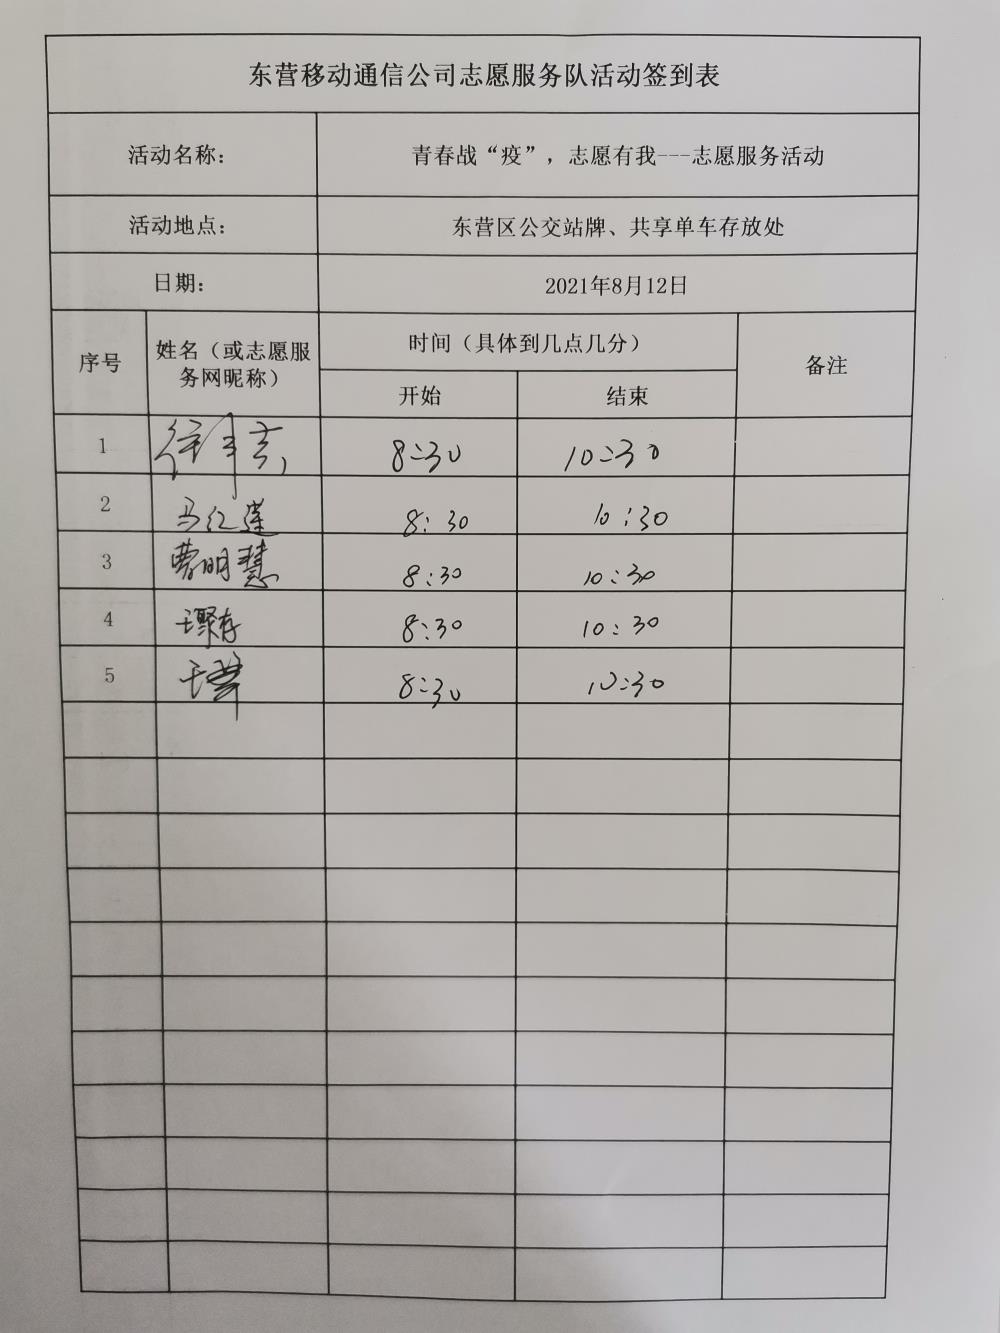 东营移动通信公司志愿服务队活动签到表
活动名称： 青春战“疫”，志愿有我---志愿服务活动
活动地点： 东营区公交站牌、共享单车存放处
日期： 2021年8月12日
序号 姓名（或志愿服务网昵称） 时间（具体到几点几分） 备注
开始 结束
1 8:30 10:30
2 马红莲 8:30 10:30
3 曹明慧 8:30 10:30
4 8:30 10:30
5 8:30 10:30